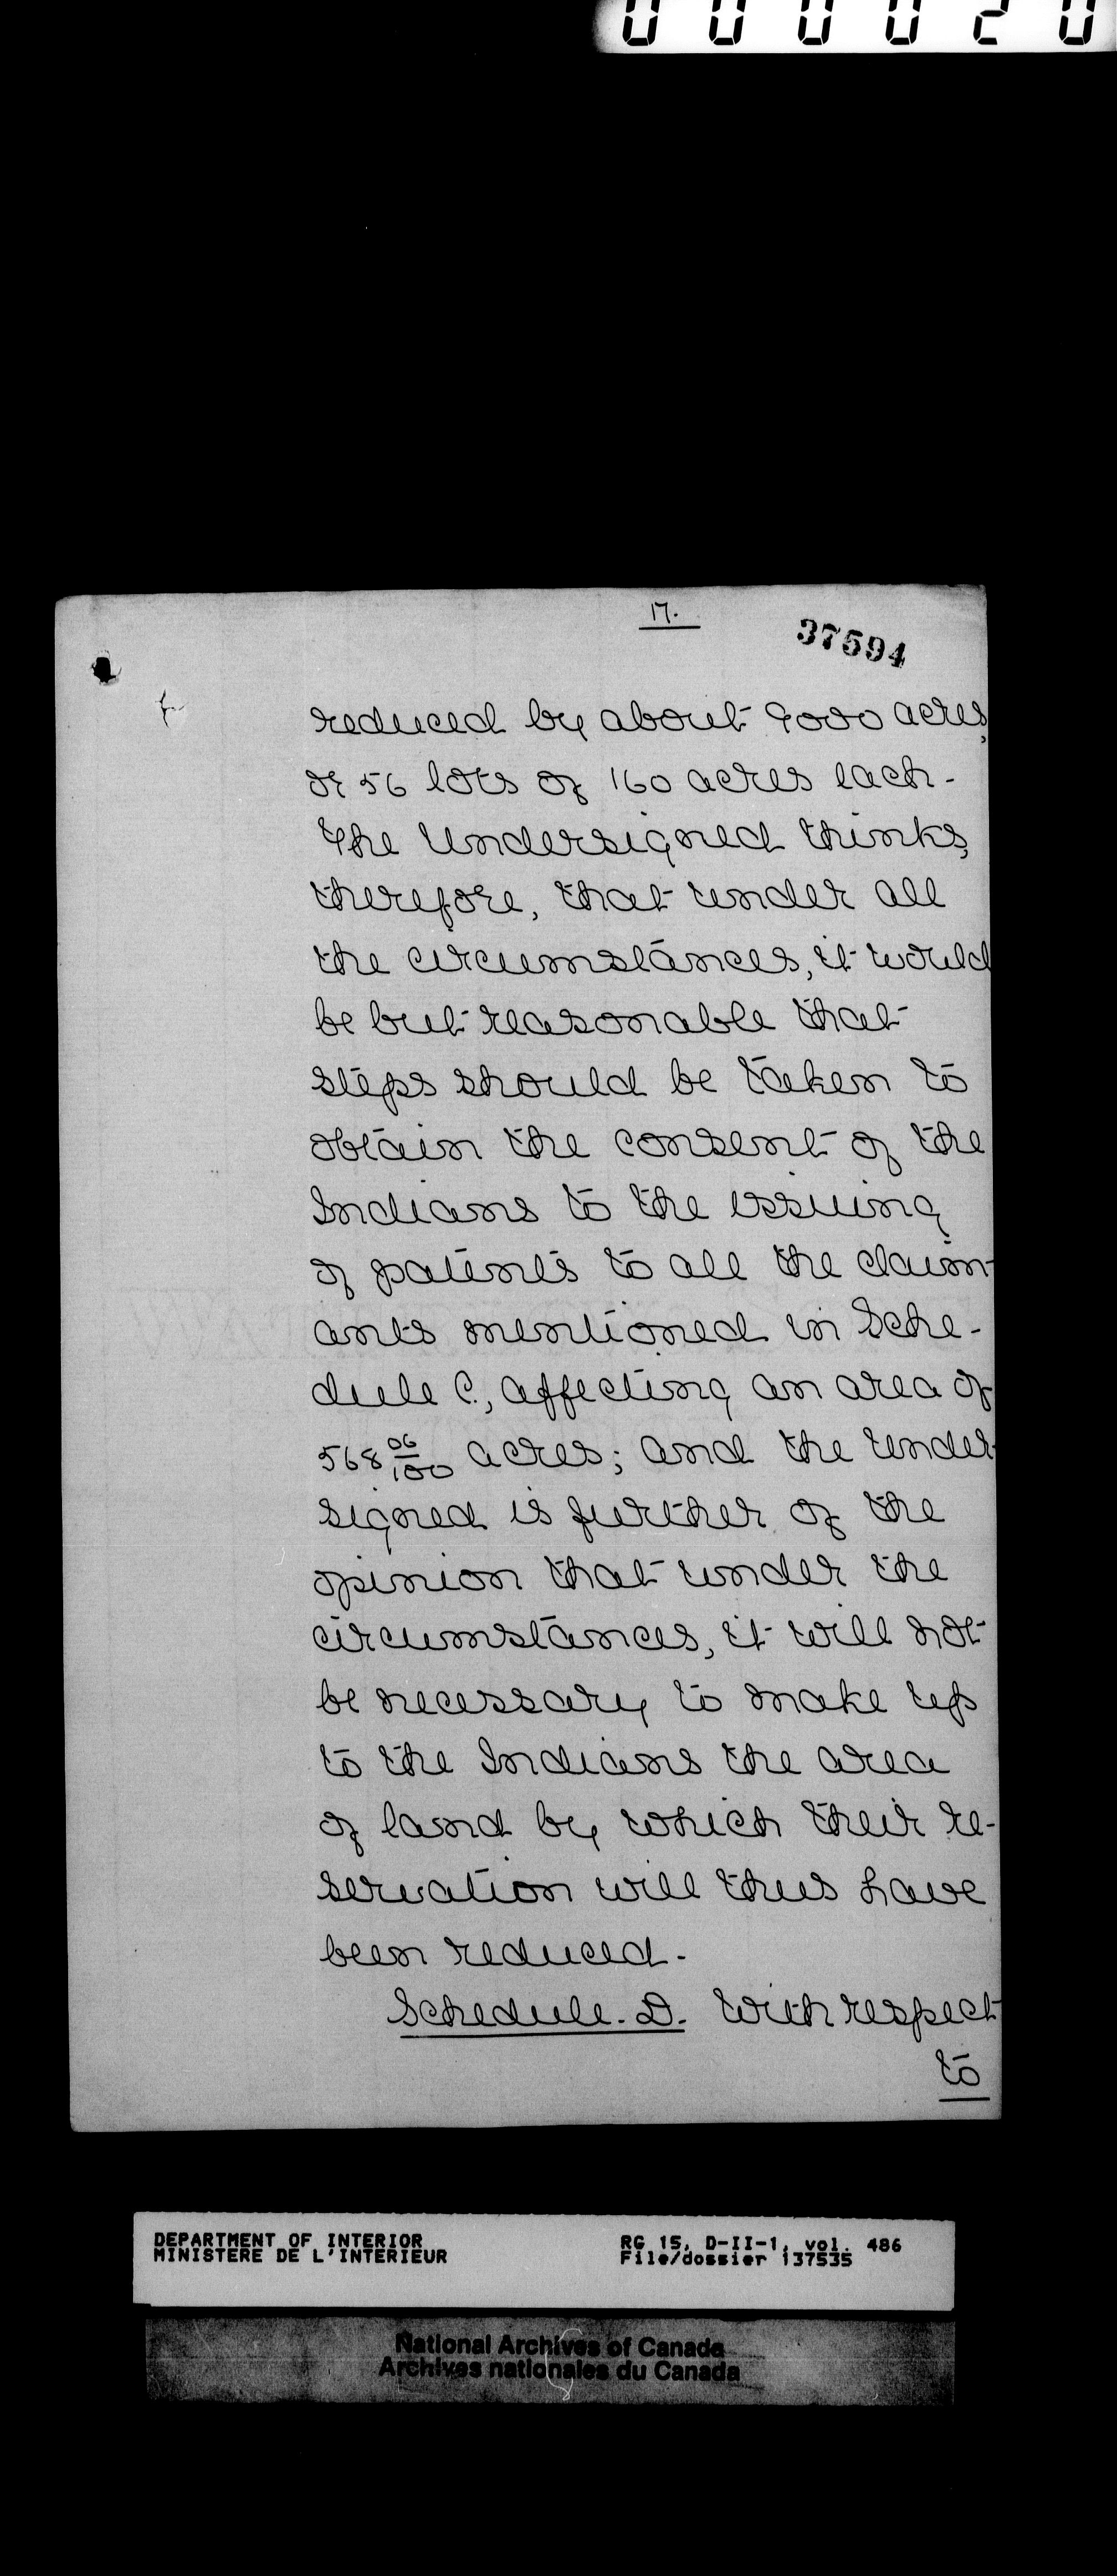 000020
17.
37594
reduced by about 9000 acres,
or 56 lots of 160 acres each.
The Undersigned thinks,
therefore, that under all
the circumstances, it would
be but reasonable that
steps should be taken to
obtain the consent of the
Indians to the issuing
of patents to all the claim-
ants mentioned in Sche-
dule C., affecting an area of
568 06/100 acres; and the Under-
signed is further of the
opinion that under the
circumstances, it will not
be necessary to make up
to the Indians the area
of land by which their re-
servation will thus have
been reduced.
Schedule. D. With respect
to
DEPARTMENT OF INTERIOR
MINISTERE DE L'INTERIEUR
RG 15, D-II-1, vol. 486
File/dossier 137535
National Archives of Canada
Archives nationales du Canada